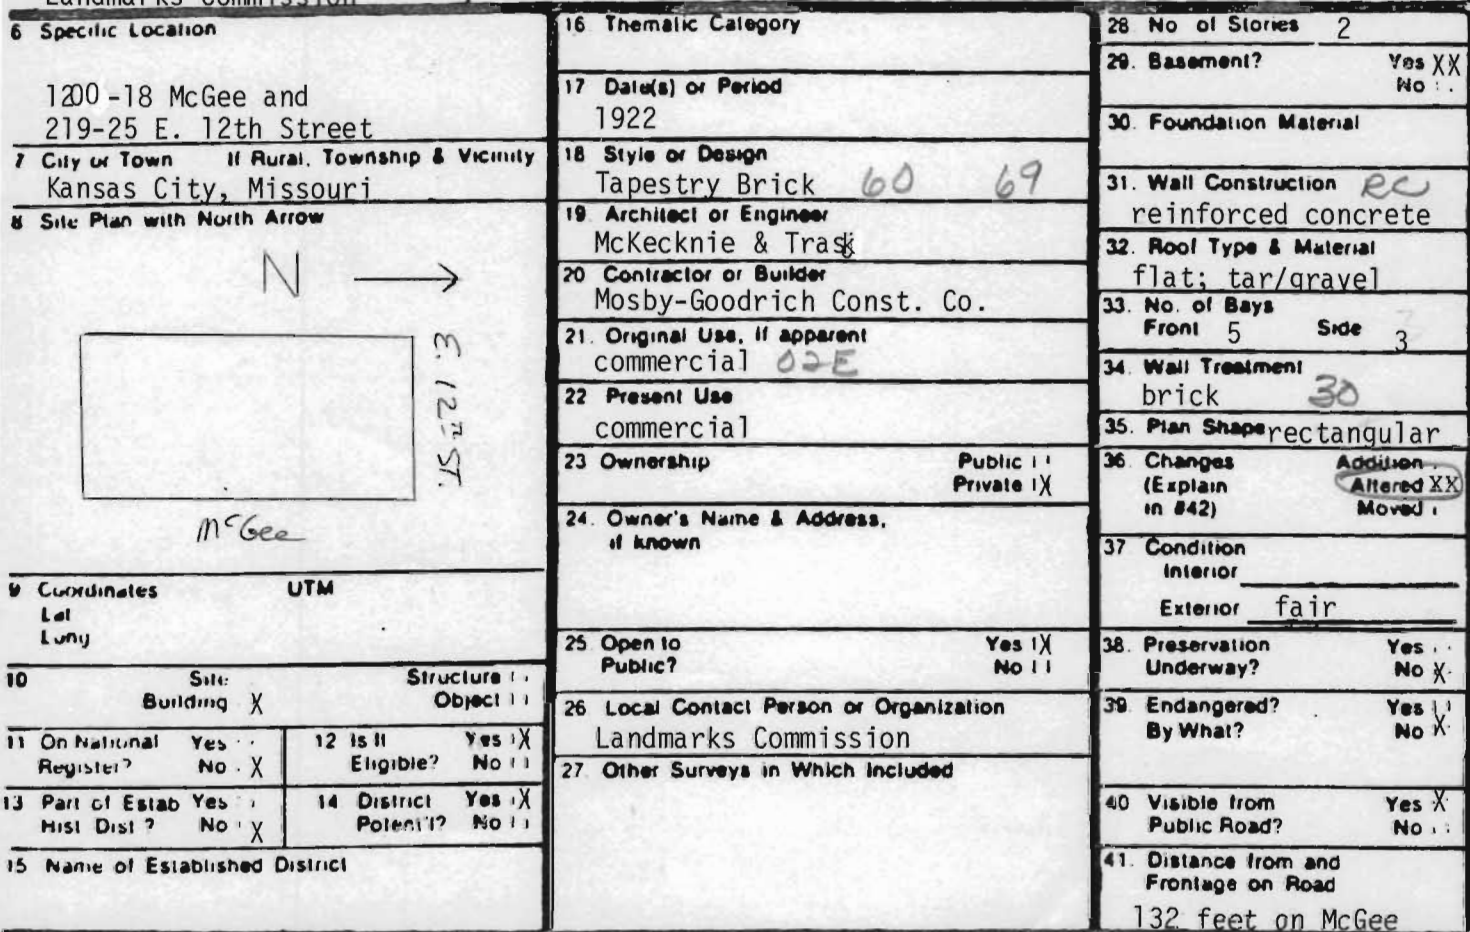 Landmarks Commission
6 Specific Location
1200-18 McGee and
219-25 E. 12th Street
7 City or Town If Rural, Township & Vicinity
Kansas City, Missouri
8 Site Plan with North Arrow
N
E. 12th ST.
McGee
9 Coordinates UTM
Lat
Long
10 Site Structure
Building X Object
11 On National Yes
Register? No X
12 Is It Yes X
Eligible? No
13 Part of Estab Yes
Hist Dist? No X
14 District Yes X
Potent'l? No
15 Name of Established District
16 Thematic Category
17 Date(s) or Period
1922
18 Style or Design
Tapestry Brick 60 69
19 Architect or Engineer
McKecknie & Trask
20 Contractor or Builder
Mosby-Goodrich Const. Co.
21. Original Use, if apparent
commercial 02E
22 Present Use
commercial
23 Ownership Public
Private X
24. Owner's Name & Address,
if known
25 Open to Yes X
Public? No
26 Local Contact Person or Organization
Landmarks Commission
27 Other Surveys in Which Included
28 No of Stories 2
29. Basement? Yes XX
No
30. Foundation Material
31. Wall Construction RC
reinforced concrete
32. Roof Type & Material
flat; tar/gravel
33. No. of Bays
Front 5 Side 3
34. Wall Treatment
brick 30
35. Plan Shape rectangular
36. Changes Addition
(Explain Altered XX
in #42) Moved
37 Condition
Interior
Exterior fair
38. Preservation Yes
Underway? No X
39. Endangered? Yes
By What? No X
40 Visible from Yes X
Public Road? No
41. Distance from and
Frontage on Road
132 feet on McGee